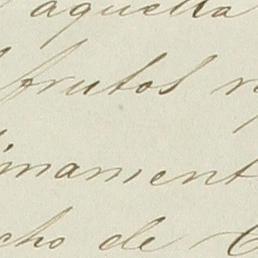 aquella
frutos
inament
cho de